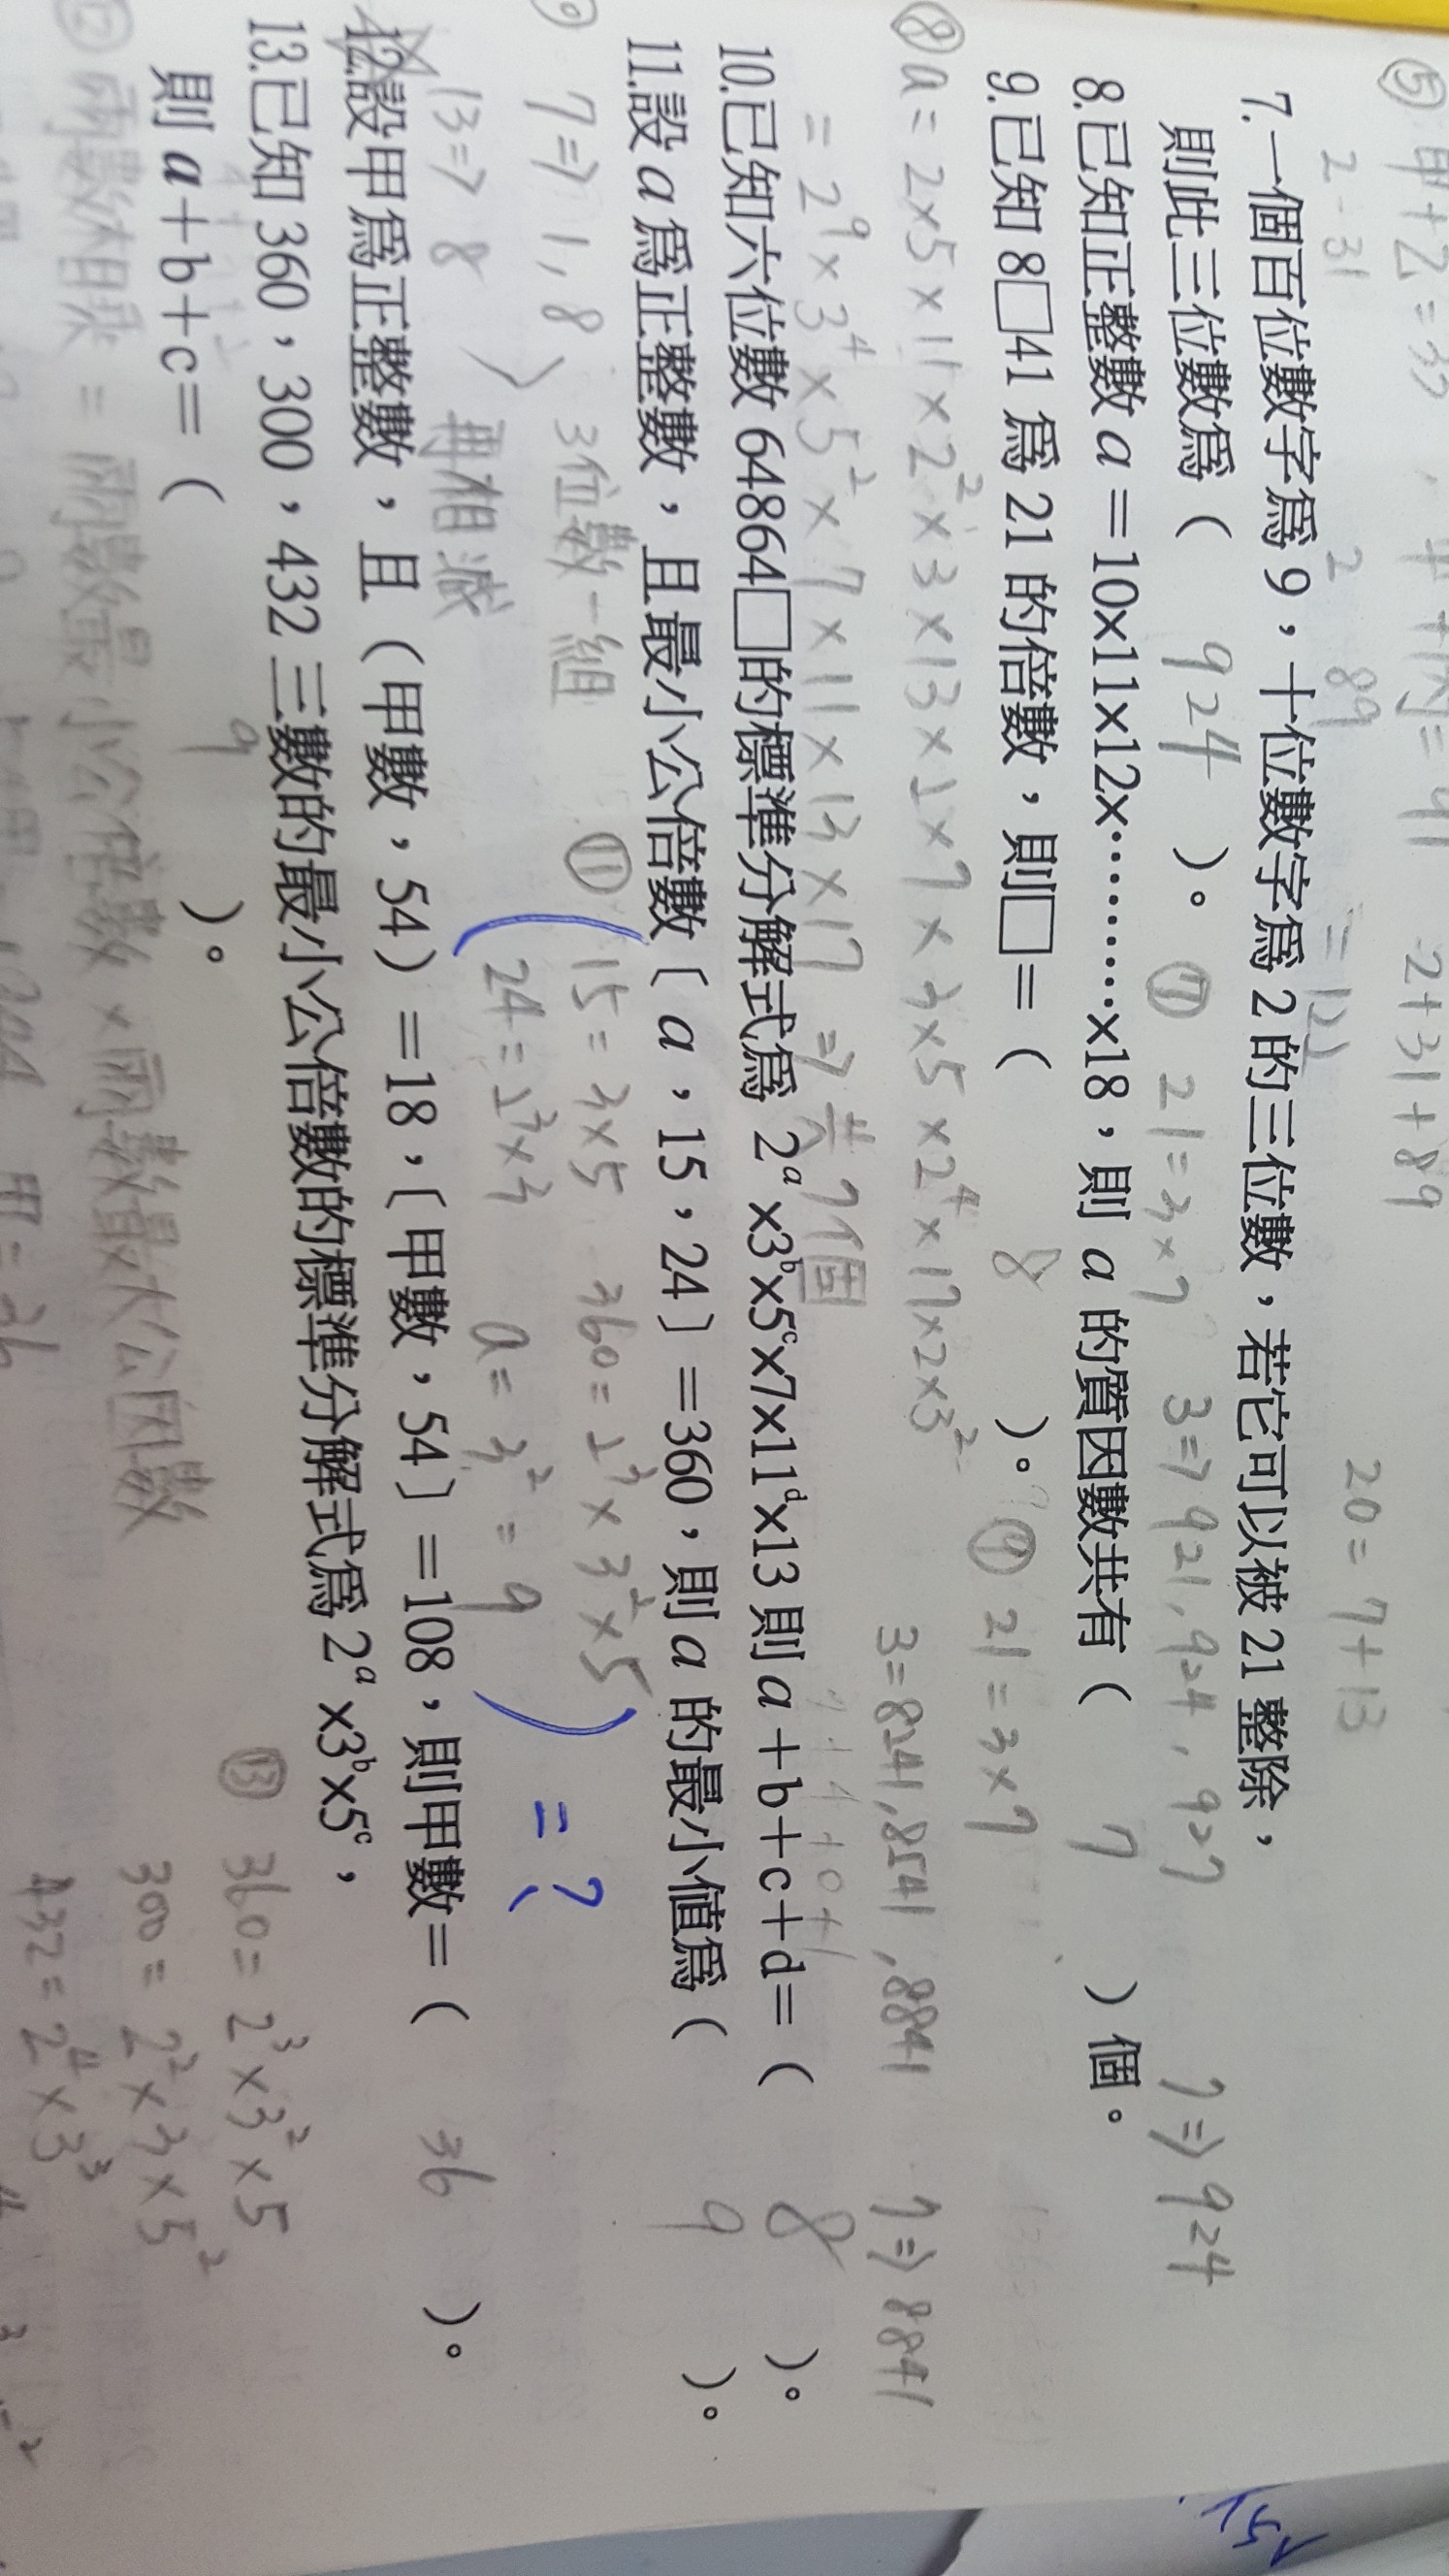 ⑤甲+乙=33，甲+丙=91 2+31+89
2-31 2 89 =122 20=7+13
7.一個百位數字爲9，十位數字爲2的三位數，若它可以被21整除，
則此三位數爲（ 924 ）。 ⑦ 21=3×7 3=>921,924,927 7=>924
8.已知正整數a=10×11×12×………×18，則a的質因數共有（ 7 ）個。
9.已知8□41爲21的倍數，則□=（ 8 ）。 ⑨ 21=3×7
⑧a=2×5×11×2²×3×13×2×7×3×5×2⁴×17×2×3² 3=8241,8541,8841 7=>8841
=2⁹×3⁴×5²×7×11×13×17 =>共7個
10.已知六位數64864□的標準分解式爲2ᵃ×3ᵇ×5ᶜ×7×11ᵈ×13則a+b+c+d=（ 8 ）。
11.設a爲正整數，且最小公倍數〔a，15，24〕=360，則a的最小值爲（ 9 ）。
⑨ 7=>1,8 〉3位數一組 ⑪ 15=3×5 360=2³×3²×5 ) =?
13=>8 再相減 ( 24=2³×3 a=3²=9
12.設甲爲正整數，且（甲數，54）=18，〔甲數，54〕=108，則甲數=（ 36 ）。
13.已知360，300，432三數的最小公倍數的標準分解式爲2ᵃ×3ᵇ×5ᶜ，
則a+b+c=（ 9 ）。
⑬ 360=2³×3²×5
300=2²×3×5²
432=2⁴×3³
⑫兩數相乘=兩數最小公倍數×兩數最大公因數